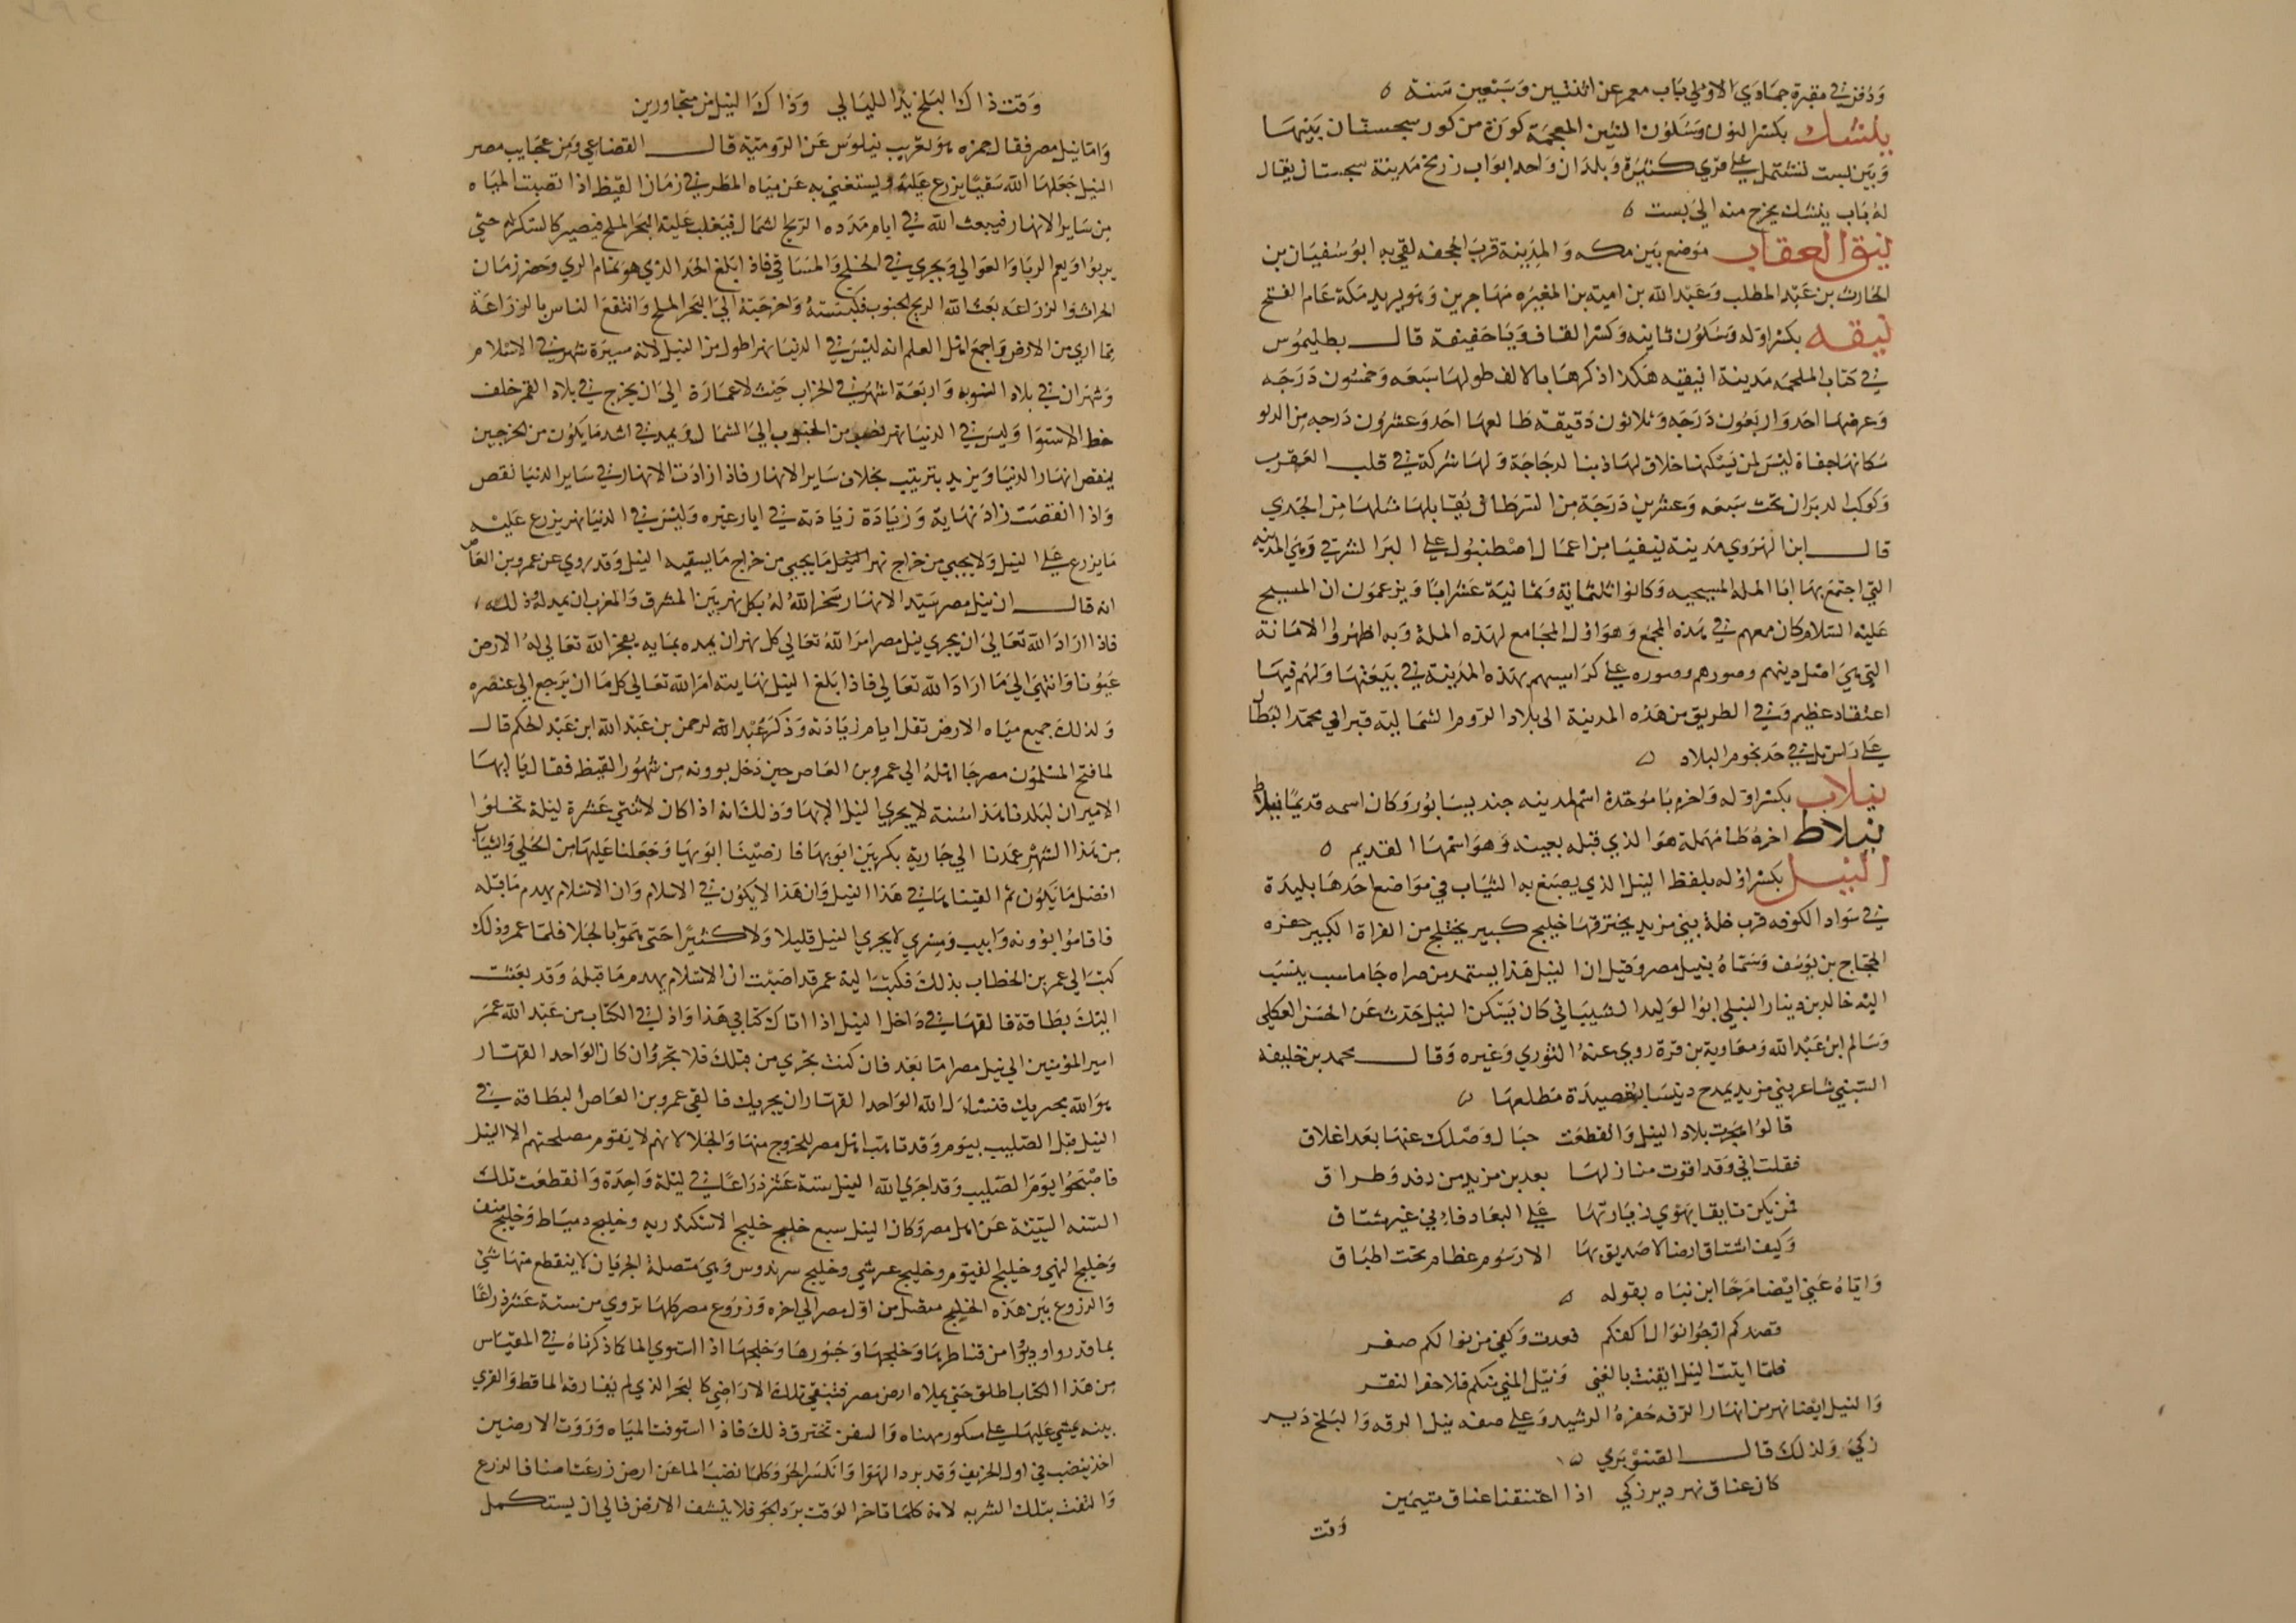 ودفن في مقبرة جمادي الاولي بباب معمر عن اثنتين وسبعين سنة ه
نيشك بكسر النون وسكون الشين المعجمة كورة من كور سجستان بينها
وبين بست تشتمل علي قري كثيرة وبلدان واحد ابواب زرنج مدينة سجستان يقال
له باب نيشك يخرج منه الي بست ه
نيق العقاب موضع بين مكه والمدينة قرب الجحفه لقي به ابو سفيان بن
الحارث بن عبد المطلب وعبد الله بن امية بن المغيره مهاجرين وهو يريد مكة عام الفتح
نيقه بكسر اوله وسكون ثانيه وكسر القاف ويا خفيفة قال بطليموس
في كتاب الملحمه مدينة انيقيه هكذا ذكرها بالالف طولها سبعه وخمسون درجه
وعرضها احد واربعون درجه وثلاثون دقيقة طالعها احد وعشرون درجه من الدلو
سكانها جفاة ليس لمن يسكنها خلاق لها ذنب الدجاجة ولها شركة في قلب العقرب
وكوكب الدبران تحت سبعه وعشرين درجة من السرطان يقابلها مثلها من الجدي
قال ابن الهروي مدينة نيقيا من اعمال اصطنبول علي البر الشرقي وهي المدينه
التي اجتمع بها ابا الملة المسيحيه وكانوا ثلثماية وثمانية عشر ابا ويزعمون ان المسيح
عليه السلام كان معهم في هذه المجمع وهو اول المجامع لهذه الملة وبه اظهروا الامانة
التي هي اصل دينهم وصورهم وصوره علي كراسيهم بهذه المدينة في بيعتها ولهم فيها
اعتقاد عظيم وفي الطريق من هذه المدينة الي بلاد الروم الشمالية قبر ابي محمد البطال
علي راس تل في حد تخوم البلاد ه
نيلاب بكسر اوله واخره با موحدة اسم لمدينه جنديسابور وكان اسمه قديما نيلاط
نيلاط اخره طا مهملة هو الذي قبله بعينه وهو اسمها القديم ه
النيل بكسر اوله بلفظ النيل الذي يصبغ به الثياب في مواضع احدها بليدة
في سواد الكوفه قرب حلة بني مزيد يخترقها خليج كبير يتخلج من الفراة الكبير حفره
الحجاج بن يوسف وسماه بنيل مصر وقيل ان النيل هذا يستمد من صراه جاماسب ينسب
اليه خالد بن دينار النيلي ابو الوليد الشيباني كان يسكن النيل حدث عن الحسن العكلي
وسالم ابن عبد الله ومعاوية بن قرة روي عنه الثوري وغيره وقال محمد بن خليفه
السنبسي شاعر بني مزيد يمدح دبيسا بقصيدة مطلعها ه
قالوا هجرت بلاد النيل وانقطعت حبال وصلك عنها بعد اغلاق
فقلت اني وقد اقوت منازلها بعد بن مزيد من وفد وطراق
فمن يكن تايقا يهوي زيارتها علي البعاد فاني غير مشتاق
وكيف اشتاق ارضا لا صديق بها الا رسوم عظام تحت اطباق
واياه عني ايضا مرجا ابن نباه بقوله ه
قصدتكم ارجو نوال اكفكم فعدت وكفي من نوالكم صفر
فلما اتيت النيل ايقنت بالغني ونيل المني منكم فلاحقوا الفقر
والنيل ايضا نهر من انهار الرقه حفره الرشيد وعلي ضفه نيل الرقه والبليخ دير
زكي ولذلك قال الصنوبري ه
كان عناق نهر دير زكي اذا اعتنقنا عناق متيمين
وقت
وقت ذاك البليخ يد الليالي وذاك النيل من متجاورين
واما نيل مصر فقال حمزه هو تعريب نيلوس عن الرومية قال القضاعي ومن عجايب مصر
النيل جعلها الله سقيا يزرع عليه ويستغني به عن مياه المطر في زمان القيظ اذا نضبت المياه
من ساير الانهار فيبعث الله في ايام مدده الريح الشمال فيغلب عليه البحر الملح فيصير كالسكر له حتي
يربوا ويعم الربا والعوالي ويجري في الخلج والمساقي فاذا بلغ الحد الذي هو تمام الري وحضر زمان
الحراثه والزراعه بعث الله الريح الجنوب فكبسته واخرجته الي البحر الملح وانتفع الناس بالزراعة
مما اروي من الارض واجمع اهل العلم انه ليس في الدنيا نهر اطول من النيل لانه مسيرة شهر في الاسلام
وشهران في بلاد النوبه واربعة اشهر في الخراب حيث لا عمارة الي ان يخرج في بلاد القمر خلف
خط الاستوا وليس في الدنيا نهر يصب من الجنوب الي الشمال ويمد في اشد ما يكون من الحر حين
ينقص انهار الدنيا ويزيد بترتيب بخلاف ساير الانهار فاذا زادت الانهار في ساير الدنيا نقص
واذا انقصت زاد نهاية وزيادة زيادته في ايار عيره وليس في الدنيا نهر يزرع عليه
ما يزرع علي النيل ولا يجبي من خراج نهر النيل ما يجبي من خراج ما يسقيه النيل وقد روي عن عمرو بن العاص
انه قال ان نيل مصر سيد الانهار سخر الله له كل نهر بين المشرق والمغرب ان يمد له وذلك
فاذا اراد الله تعالي ان يجري نيل مصر امر الله تعالي كل نهر ان يمده بمايه يفجر الله تعالي له الارض
عيونا وانتهي الي ما اراد الله تعالي فاذا بلغ النيل نهايته امر الله تعالي كل ما ان يرجع الي عنصره
ولذلك جميع مياه الارض تقل ايام زيادته وذكر عبد الرحمن بن عبد الله ابن عبد الحكم قال
لما فتح المسلمون مصر جا اهله الي عمرو بن العاص حين دخل بوونه من شهور القبط فقال يا ايها
الامير ان لبلدنا هذا سنة لا يجري النيل الا بها وذلك انه اذا كان لاثنتي عشرة ليلة تخلوا
من هذا الشهر عمدنا الي جارية بكر بين ابويها فارضينا ابويها وجعلنا عليها من الحلي والثياب
افضل ما يكون ثم القيناها في هذا النيل وان هذا لا يكون في الاسلام وان الاسلام يهدم ما قبله
فاقاموا بوونه وابيب ومسري لا يجري النيل قليلا ولا كثيرا حتي هموا بالجلا فلما عمرو ذلك
كتب الي عمر بن الخطاب بذلك فكتب اليه عمر قد اصبت ان الاسلام يهدم ما قبله وقد بعثت
اليك بطاقة فالقها في داخل النيل اذا اتاك كتابي هذا واذ في الكتاب من عبد الله عمر
امير المؤمنين الي نيل مصر اما بعد فان كنت تجري من قبلك فلا تجر وان كان الواحد القهار
هو الله يجريك فنسال الله الواحد القهار ان يجريك فالقي عمرو بن العاص البطاقه في
النيل قبل الصليب بيوم وقد تاهب اهل مصر للخروج منها والجلا لانهم لا يقوم مصلحتهم الا النيل
فاصبحوا يوم الصليب وقد اجري الله النيل ستة عشر ذراعا في ليلة واحدة وانقطعت تلك
السنه السيئة عن اهل مصر وكان النيل سبع خلج خليج الاسكندريه وخليج دمياط وخليج منف
وخليج المنهي وخليج الفيوم وخليج عرشي وخليج سردوس وهي متصلة الجريان لا ينقطع منها شي
والزروع بين هذه الخليج متصل من اول مصر الي اخره وزروع مصر كلها تروي من ستة عشر ذراعا
بما قدروا ودبروا من قناطرها وخلجها وجسورها وخلجها اذا استوي الما كما ذكرناه في المقياس
من هذا الكتاب اطلق حتي يملاه ارض مصر فتبقي تلك الاراضي كالبحر الذي لم يفارقه الما قط والقري
بينه يمشي عليها علي سكور مهناه والسفن تخترق ذلك فاذا استوفت المياه ورويت الارضين
اخذ ينضب في اول الخريف وقد برد الهوا وانكسر الحر وكلما نضب الما عن ارض زرعت اصنافا لزرع
واكتفت بتلك الشربه لانه كلما تاخر الوقت برد الجو فلا ينشف الارض فالي ان يستكمل